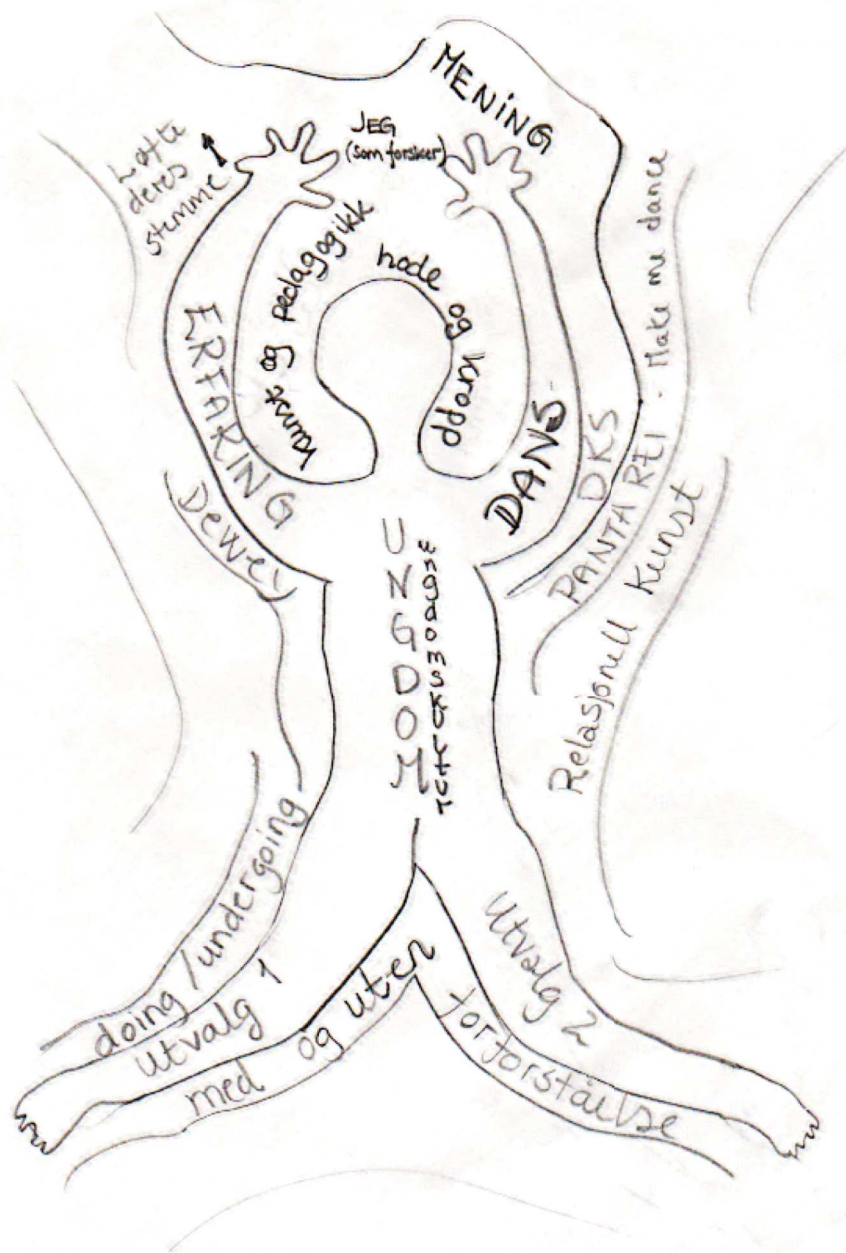 MENING
JEG
(som forsker)
Løfte
deres
stemme
kunst og pedagogikk
hode og kropp
ERFARING
DANS
DKS
PANTA REI - Make me dance
Relasjonell Kunst
Dewey
UNGDOM
ungdomskultur
doing/undergoing
Utvalg 1
Utvalg 2
med og uten
forforståelse